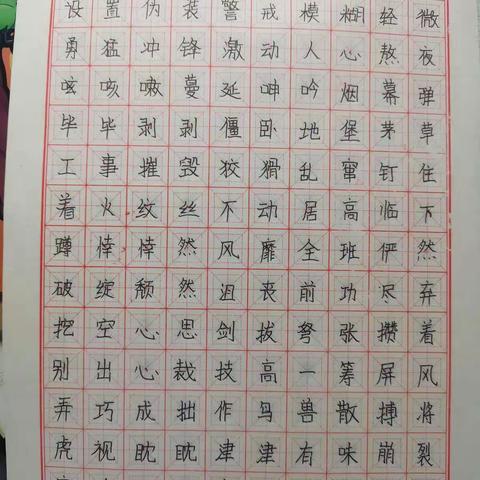 设置伪装警戒模糊轻微
勇猛冲锋激动人心熬夜
咳嗽蔓延呻吟烟幕弹
毕毕剥剥僵卧地堡茅草
工事摧毁狡猾乱窜钉住
着火纹丝不动居高临下
蹲悻悻然风靡全班俨然
破绽颓然沮丧前功尽弃
挖空心思剑拔弩张攒着
别出心裁技高一筹屏风
弄巧成拙作鸟兽散搏将
虎视眈眈津津有味崩裂